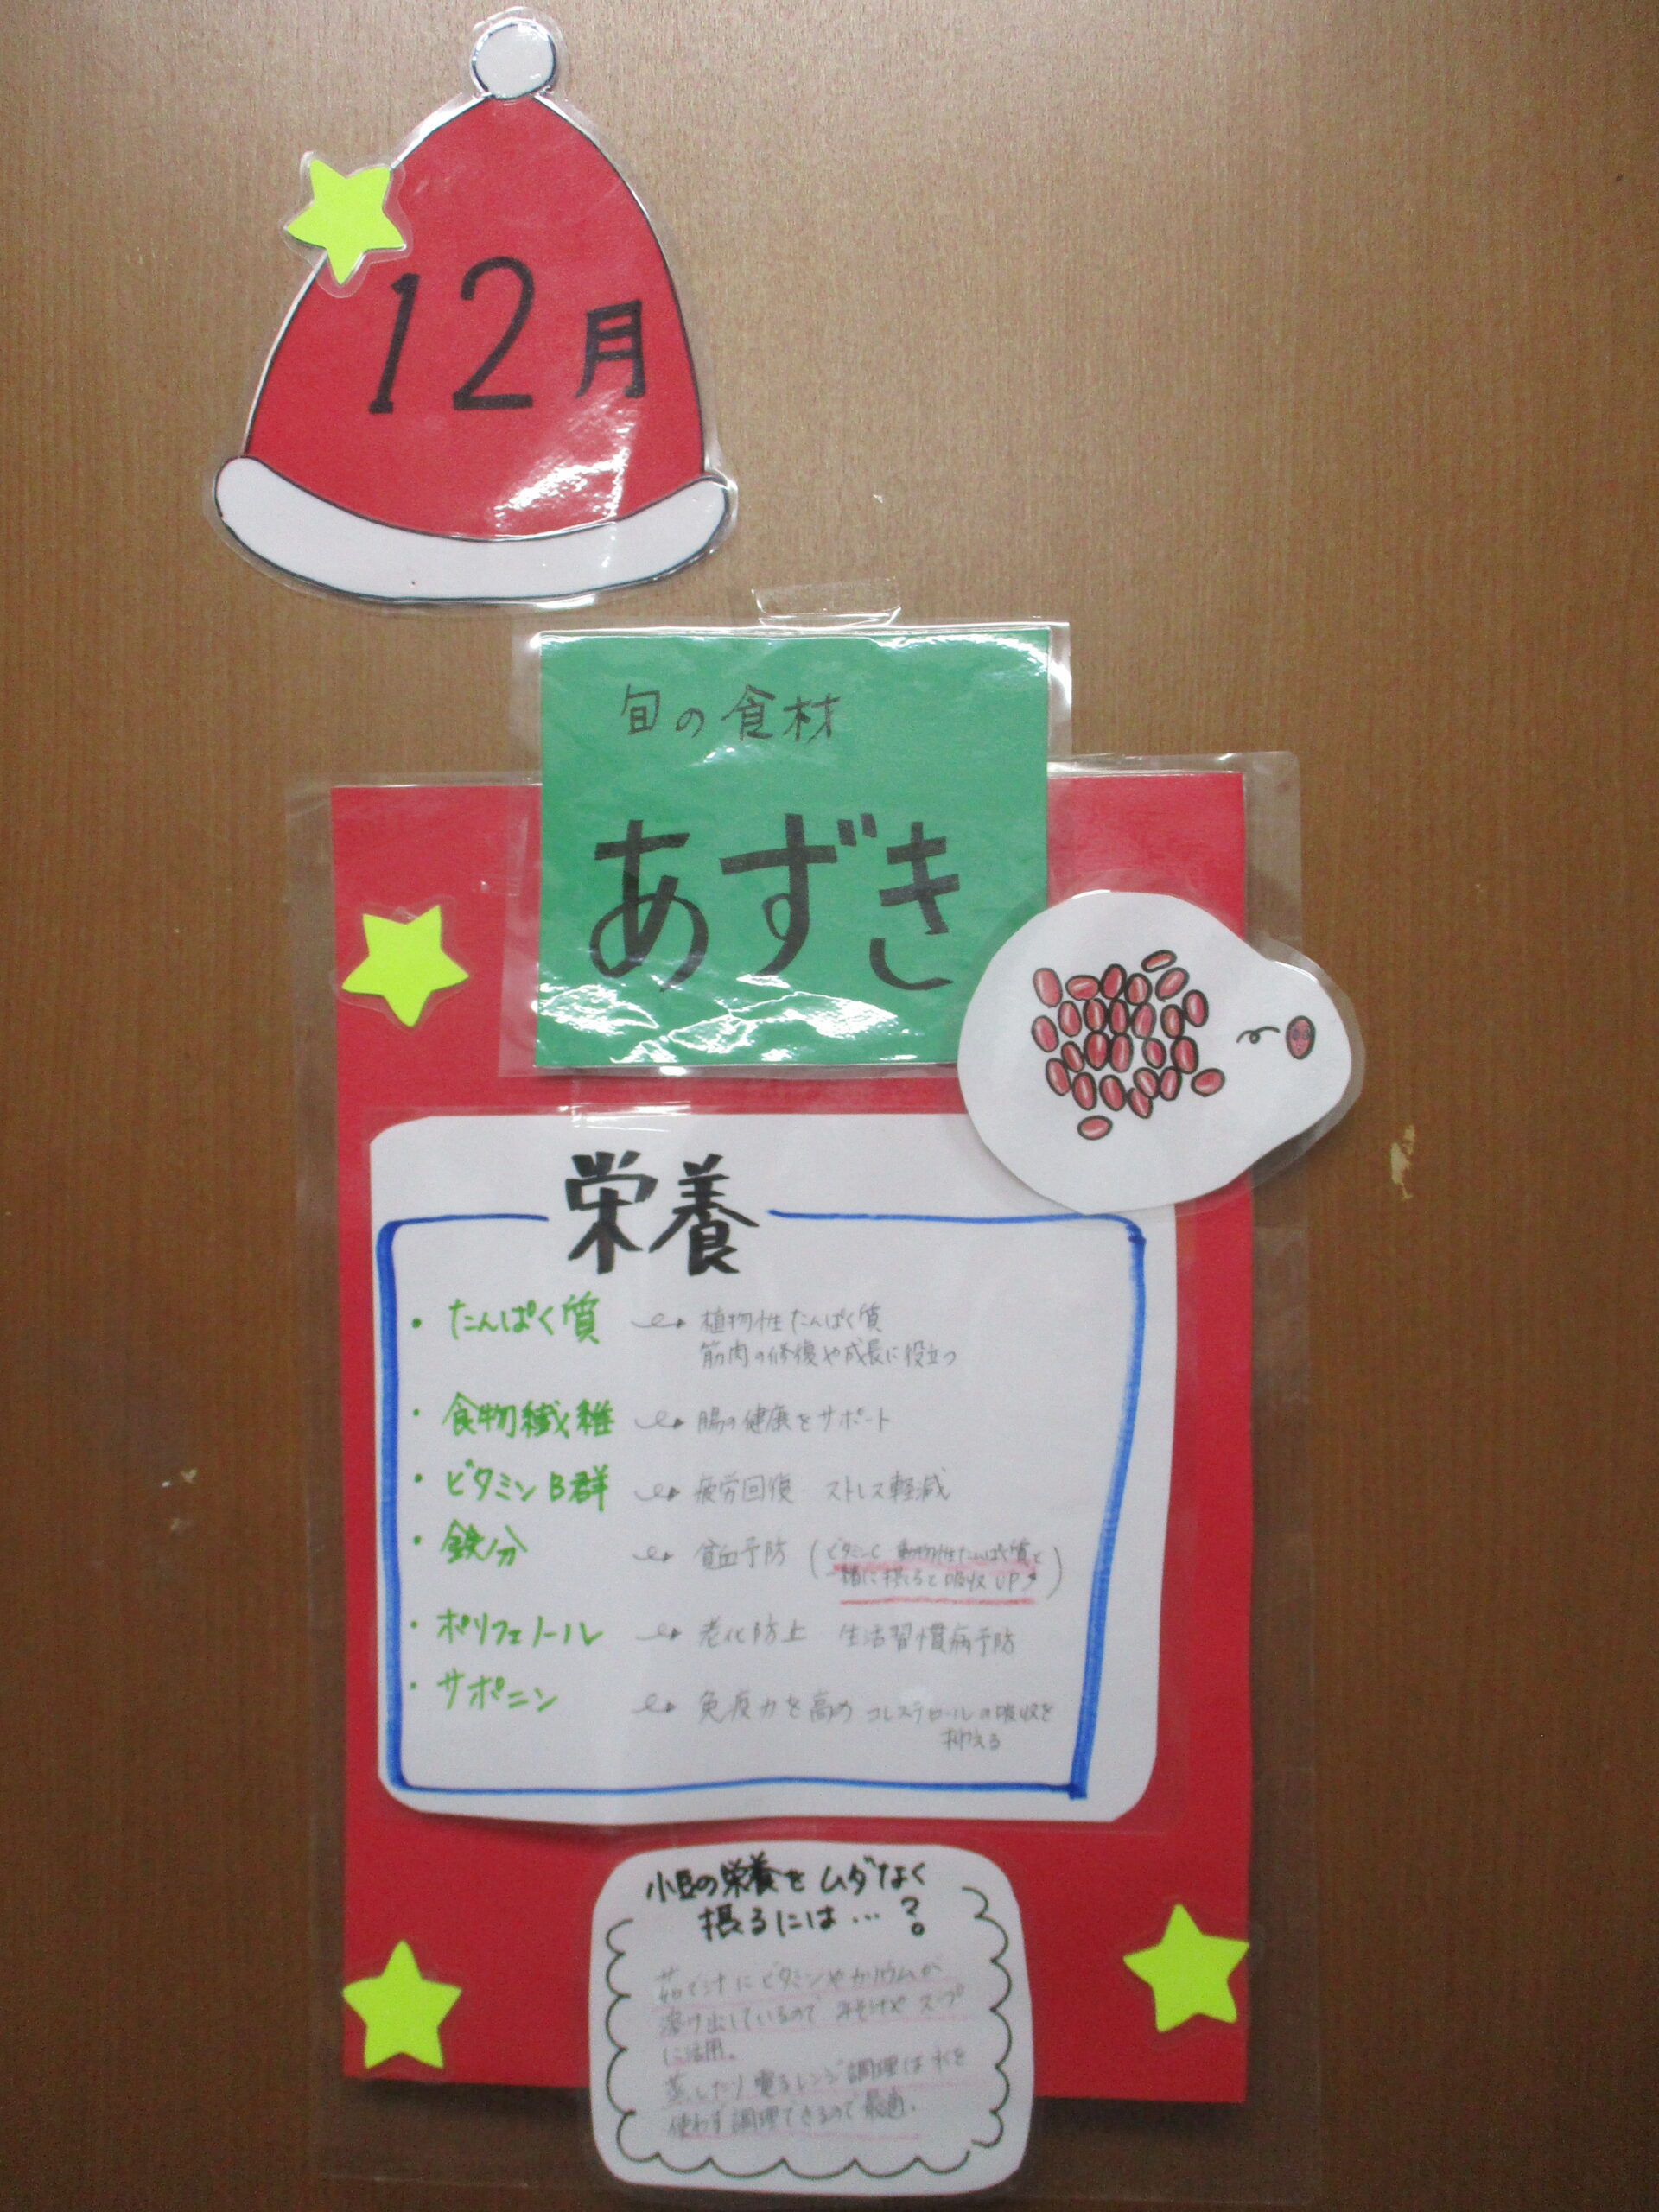 12月
旬の食材
あずき
栄養
・たんぱく質 植物性たんぱく質
筋肉の修復や成長に役立つ
・食物繊維 腸の健康をサポート
・ビタミンB群 疲労回復 ストレス軽減
・鉄分 貧血予防 (ビタミンC 動物性たんぱく質と
一緒に摂ると吸収UP↗)
・ポリフェノール 老化防止 生活習慣病予防
・サポニン 免疫力を高め コレステロールの吸収を
抑える
小豆の栄養をムダなく
摂るには…?
茹で汁にビタミンやカリウムが
溶け出しているので みそ汁やスープ
に活用。
蒸したり電子レンジ調理は水を
使わず調理できるので最適。